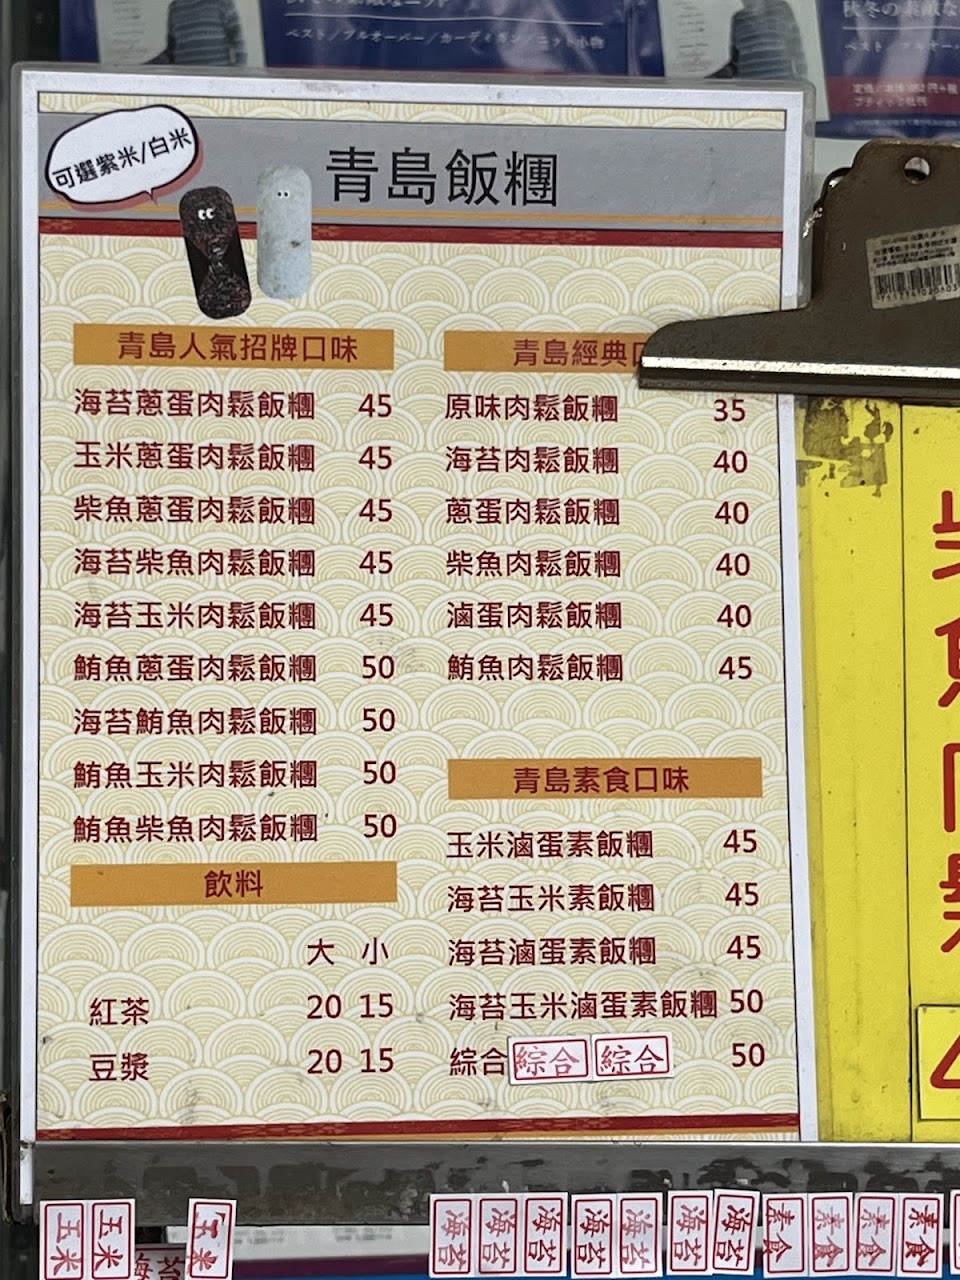 秋冬の素敵なニット
ベスト／プルオーバー／カーディガン／ニット小物
秋冬の素敵な
可選紫米/白米
青島飯糰
青島人氣招牌口味
海苔蔥蛋肉鬆飯糰 45
玉米蔥蛋肉鬆飯糰 45
柴魚蔥蛋肉鬆飯糰 45
海苔柴魚肉鬆飯糰 45
海苔玉米肉鬆飯糰 45
鮪魚蔥蛋肉鬆飯糰 50
海苔鮪魚肉鬆飯糰 50
鮪魚玉米肉鬆飯糰 50
鮪魚柴魚肉鬆飯糰 50
飲料
大 小
紅茶 20 15
豆漿 20 15
青島經典口
原味肉鬆飯糰 35
海苔肉鬆飯糰 40
蔥蛋肉鬆飯糰 40
柴魚肉鬆飯糰 40
滷蛋肉鬆飯糰 40
鮪魚肉鬆飯糰 45
青島素食口味
玉米滷蛋素飯糰 45
海苔玉米素飯糰 45
海苔滷蛋素飯糰 45
海苔玉米滷蛋素飯糰 50
綜合 綜合 綜合 50
柴魚肉鬆
玉米 玉米 海苔 玉米 海苔 海苔 海苔 海苔 海苔 海苔 海苔 素食 素食 素食 素食